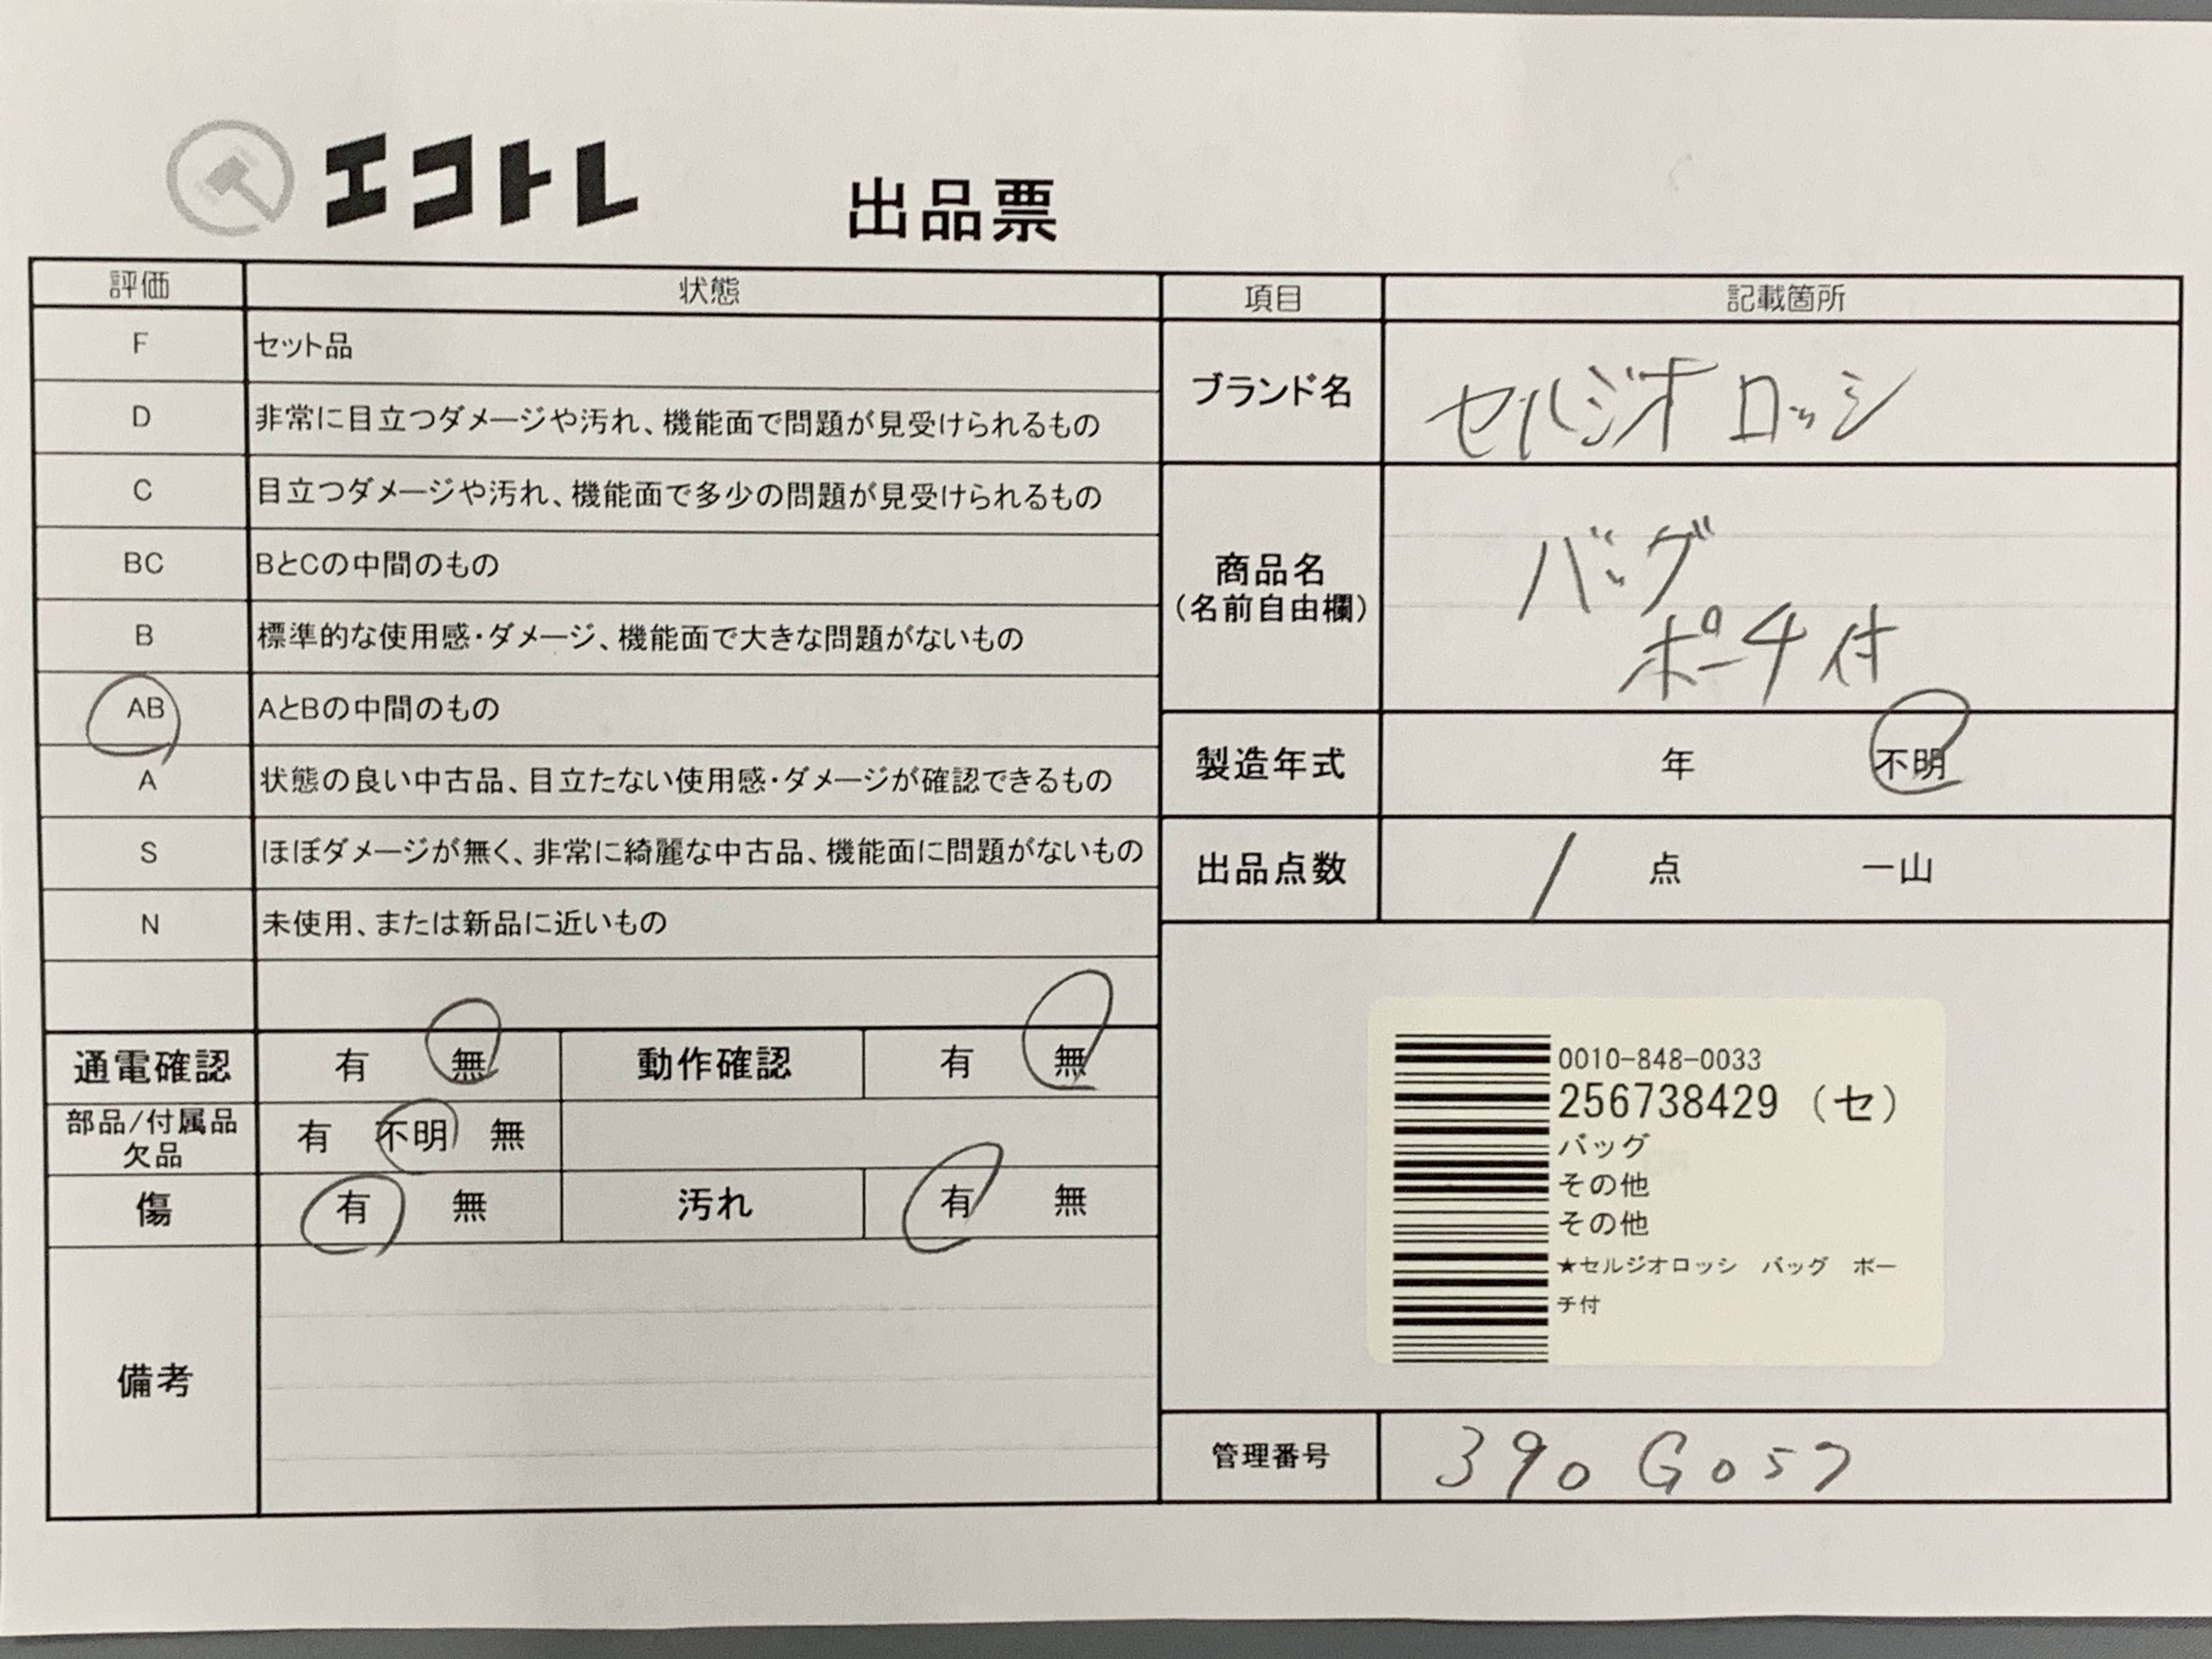 エコトレ
出品票
評価 状態
F セット品
D 非常に目立つダメージや汚れ、機能面で問題が見受けられるもの
C 目立つダメージや汚れ、機能面で多少の問題が見受けられるもの
BC BとCの中間のもの
B 標準的な使用感・ダメージ、機能面で大きな問題がないもの
AB AとBの中間のもの
A 状態の良い中古品、目立たない使用感・ダメージが確認できるもの
S ほぼダメージが無く、非常に綺麗な中古品、機能面に問題がないもの
N 未使用、または新品に近いもの
通電確認 有 無 動作確認 有 無
部品/付属品
欠品
有 不明 無
傷 有 無 汚れ 有 無
備考
項目 記載箇所
ブランド名 セルジオ ロッシ
商品名
(名前自由欄)
バッグ
ポーチ付
製造年式 年 不明
出品点数 1 点 一山
0010-848-0033
256738429 (セ)
バッグ
その他
その他
★セルジオロッシ バッグ ポー
チ付
管理番号 390 G057